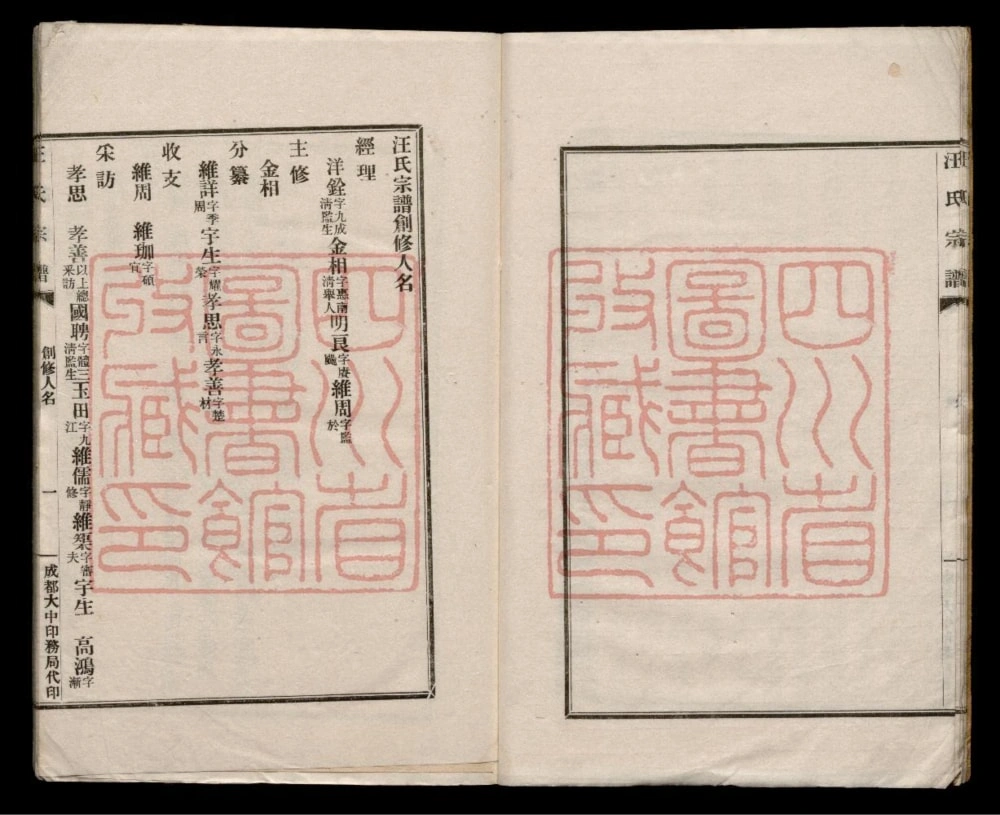 汪氏宗譜
四川省
圖書館
收藏印
汪氏宗譜創修人名
經理
洋銓字九成清監生 金相字惠南清舉人 明良字賡颺 維周字監於
主修
金相
分纂
維詳字季周 宇生字耀榮 孝思字永言 孝善字楚材
收支
維周 維珈字碩宜
采訪
孝思 孝善以上總采訪 國聘字體三清監生 玉田字九江 維儒字靜修 維榘字審夫 宇生 高鴻字漸
汪氏宗譜
創修人名
一
成都大中印務局代印
四川省
圖書館
收藏印